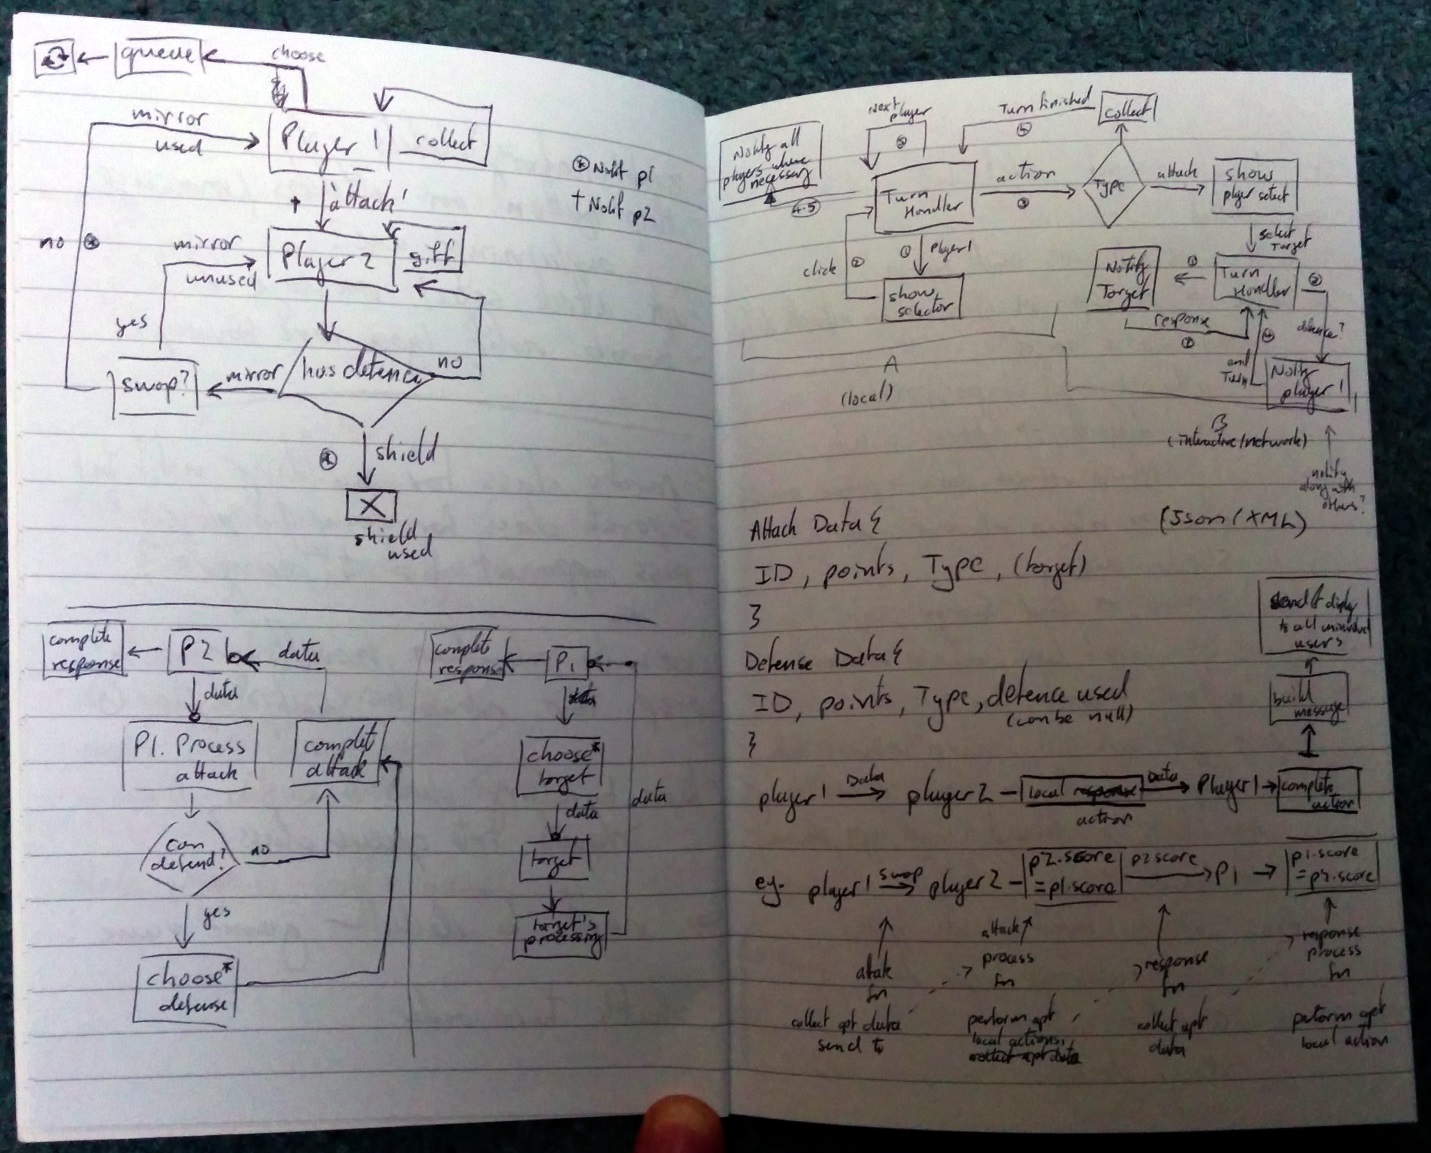 queue
choose
mirror
used
Player 1
collect
attack!
⊛ Notif p1
+ Notif p2
no
mirror
unused
Player 2
gift
yes
swap?
mirror
has defence
no
shield
X
shield
used
complete
response
P2
data
data
P1. Process
attack
complet
attack
can
defend?
no
yes
choose*
defense
complete
response
P1
data
choose*
target
data
target
target's
processing
data
Notify all
players where
necessary
4.5
Next
player
5
Turn finished
4
collect
Turn
Handler
action
3
Type
attack
show
player select
click
2
1
player1
show
selector
select
Target
Notify
Target
1
Turn
Handler
2
response
defence?
end
Turn
Notify
player 1
A
(local)
B
(interactive/network)
notify
along with
others?
Attack Data {
(Json / XML)
ID, points, Type, (target)
}
Defense Data {
ID, points, Type, defence used
(can be null)
}
to all
users
build
message
player1
Data
player 2
local response
action
Data
Player1
complete
action
eg.
player1
swap
player 2
p2.score
=p1.score
p2score
P1
p1.score
=p2.score
attak
fn
attack
process
fn
response
fn
response
process
fn
collect apt data
send to
perform apt
local actions,
collect apt data
collect apt
data
perform apt
local action